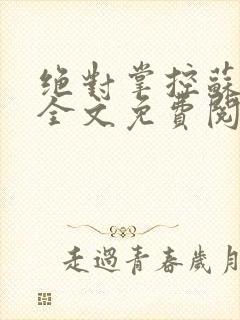 絶對掌控蘇
全文免費閱
走過青春歲月